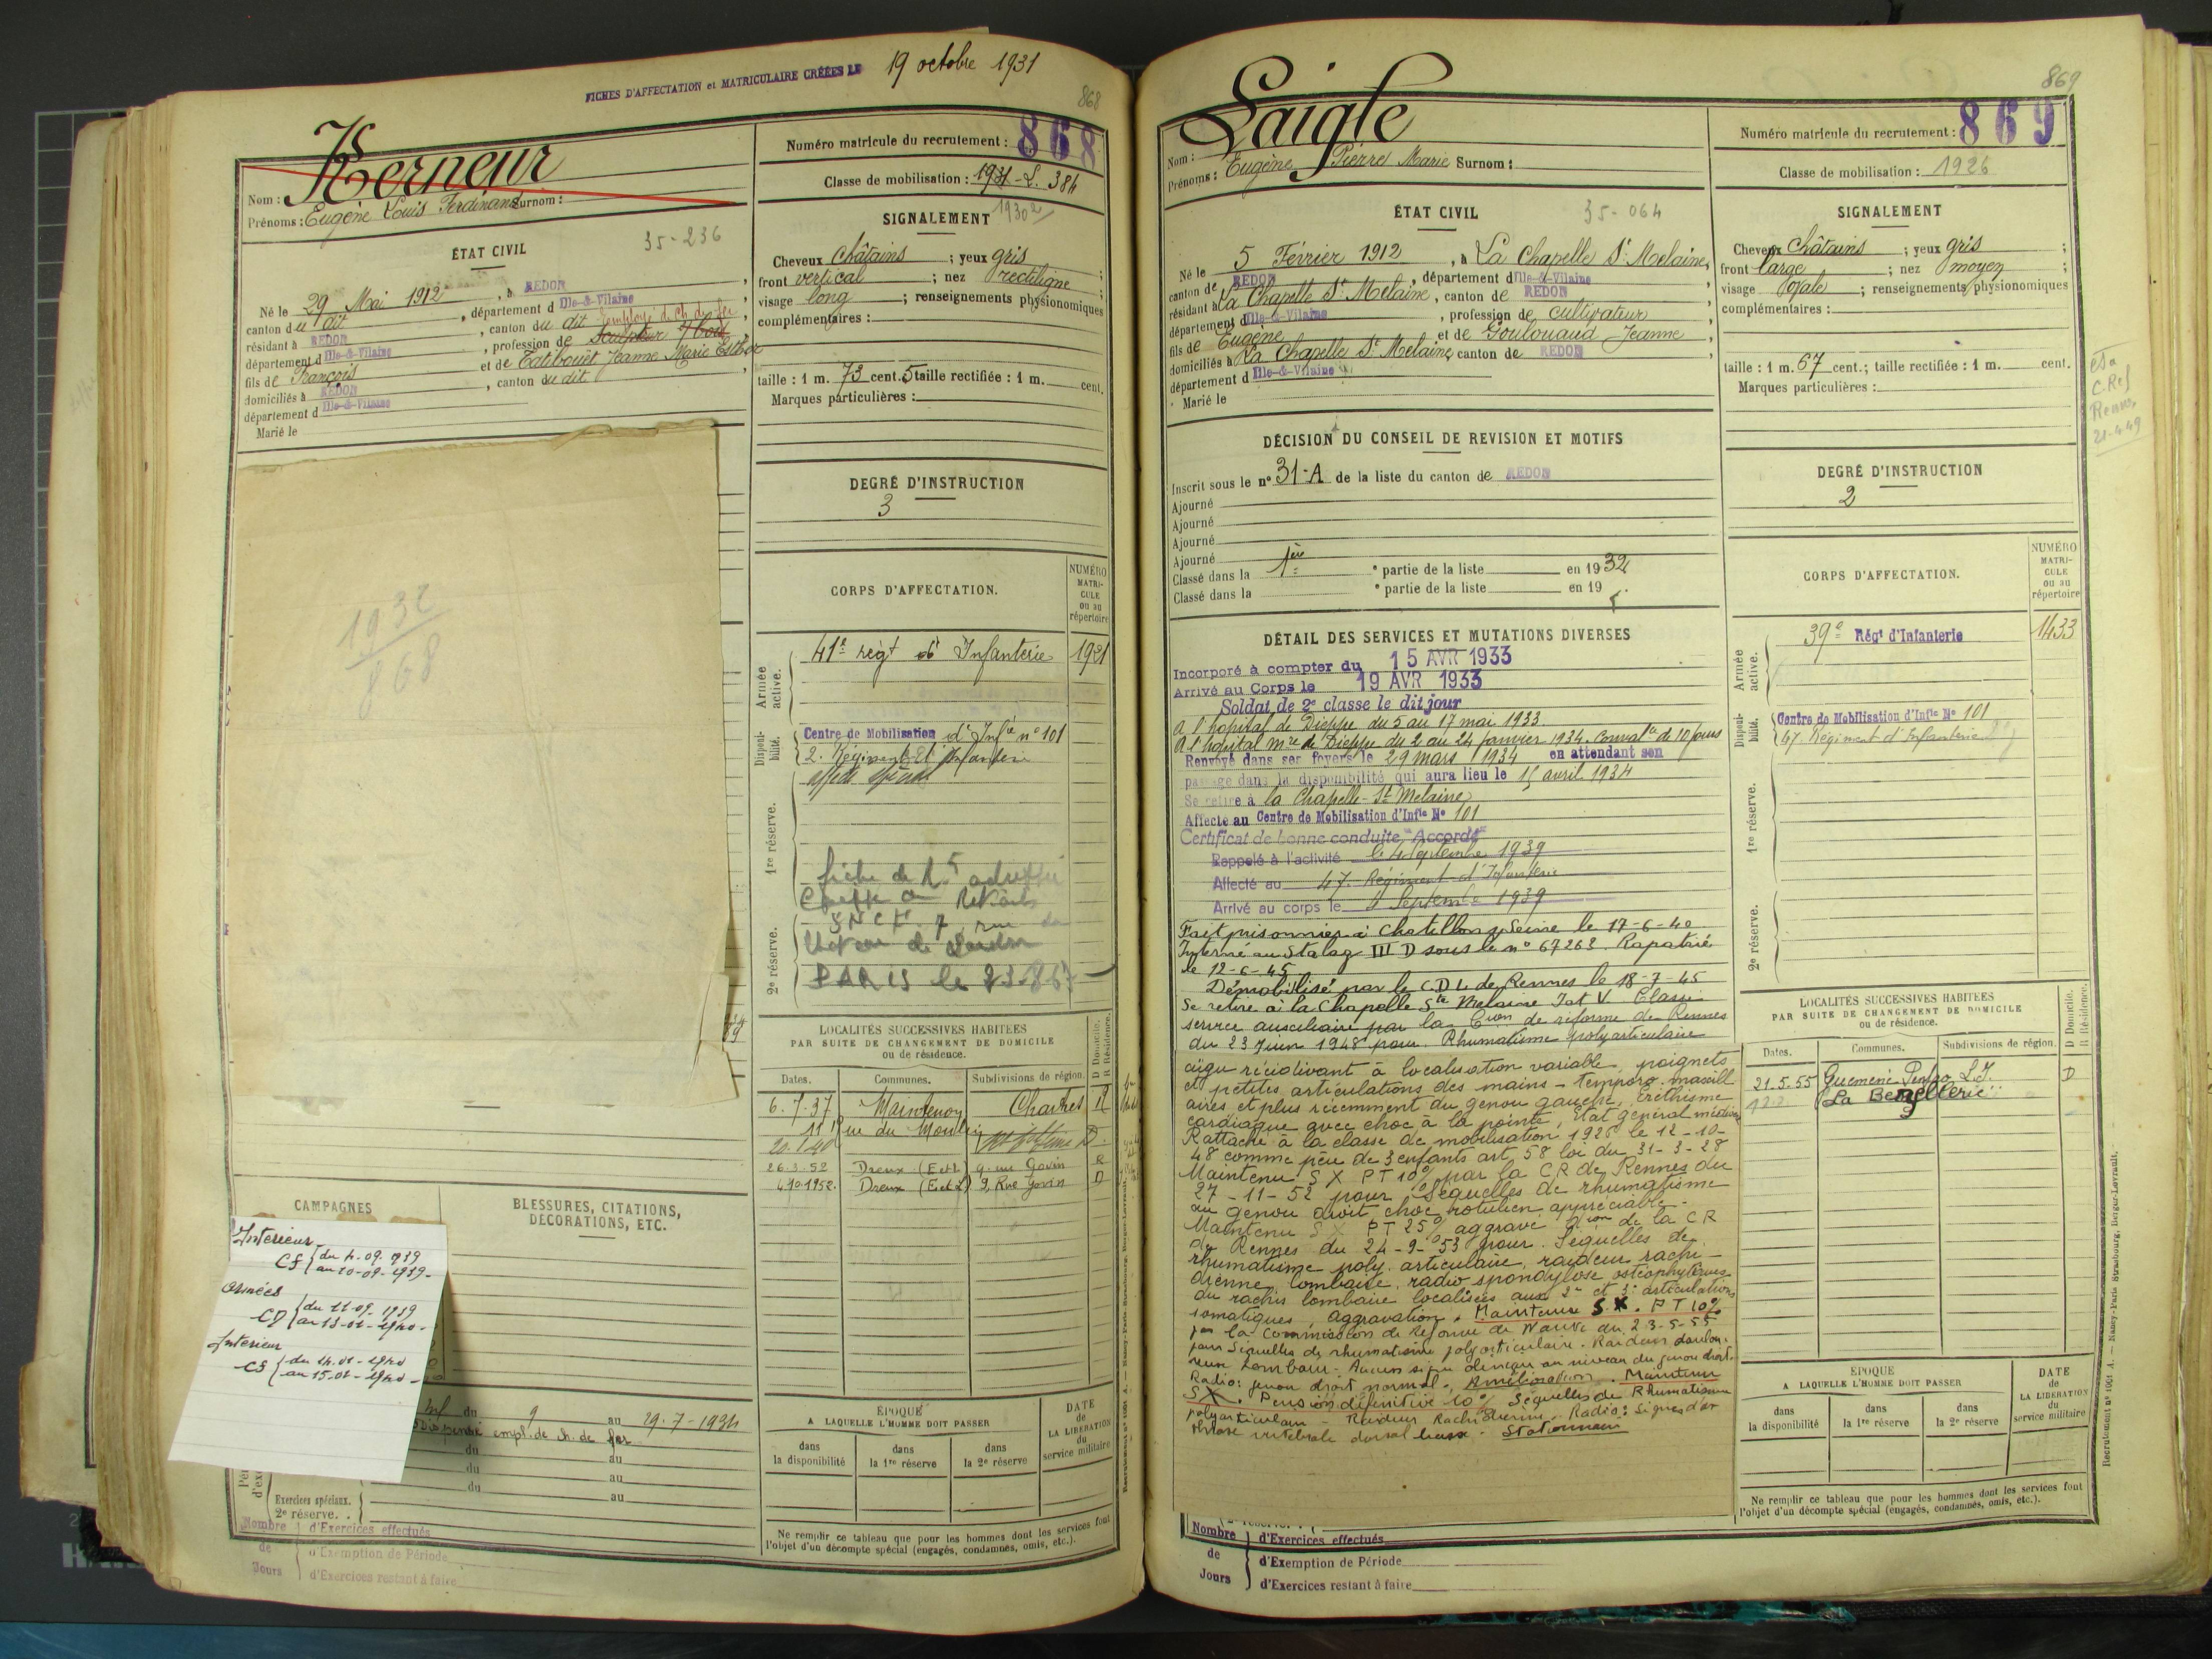 FICHES D'AFFECTATION et MATRICULAIRE CRÉÉES LE 19 octobre 1931
868
Nom : Kerneur
Prénoms : Eugène Louis Ferdinand Surnom :
ÉTAT CIVIL
35-236
Né le 29 Mai 1912, à REDON
canton du dit, département d Ille-&-Vilaine
résidant à REDON, canton du dit employé de ch. de fer
département d Ille-&-Vilaine, profession de sculpteur s/bois
fils de François et de Tatibouët Jeanne Marie Esther
domiciliés à REDON, canton du dit
département d Ille-&-Vilaine
Marié le
1932
868
CAMPAGNES
BLESSURES, CITATIONS,
DÉCORATIONS, ETC.
Intérieur
CS { du 4-09-1939
au 10-09-1939-
Armées
CD { du 11-09-1939
au 13-01-1940-
Intérieur
CS { du 14-01-1940
au 15-01-1940-
du 9 au 29-7-1934
Dispensé empl. de ch. de fer
du au
du au
du au
Exercices spéciaux.
2e réserve. .
Nombre de Jours
d'Exercices effectués
d'Exemption de Période
d'Exercices restant à faire
Numéro matricule du recrutement : 868
Classe de mobilisation : 1931 - L. 384
1930
SIGNALEMENT
Cheveux châtains ; yeux gris ;
front vertical ; nez rectiligne ;
visage long ; renseignements physionomiques
complémentaires :
taille : 1 m. 73 cent. 5 taille rectifiée : 1 m. cent.
Marques particulières :
DEGRÉ D'INSTRUCTION
3
CORPS D'AFFECTATION.
NUMÉRO MATRICULE ou au répertoire
Armée active.
41e régt d'Infanterie 1921
Disponibilité.
Centre de Mobilisation d'Infie n° 101
2. Régiment d'Infanterie
affecté spécial
1re réserve.
2e réserve.
PARIS le
LOCALITÉS SUCCESSIVES HABITÉES
PAR SUITE DE CHANGEMENT DE DOMICILE
ou de résidence.
D Domicile. R Résidence.
Dates. Communes. Subdivisions de région.
6.7.37 Maintenon Chartres R
11 rue du Moulin
20.1.40 D.
26.3.52 Dreux (E et L) 9. rue Govin R
4.10.1952. Dreux (E et L) 9, Rue Govin D
ÉPOQUE
A LAQUELLE L'HOMME DOIT PASSER
dans la disponibilité
dans la 1re réserve
dans la 2e réserve
DATE de LA LIBÉRATION du service militaire
Ne remplir ce tableau que pour les hommes dont les services font
l'objet d'un décompte spécial (engagés, condamnés, omis, etc.).
869
Nom : Laigle
Prénoms : Eugène Pierre Marie Surnom :
ÉTAT CIVIL
35-064
Né le 5 Février 1912, à La Chapelle St Melaine,
canton de REDON, département d Ille-&-Vilaine
résidant à La Chapelle St Melaine, canton de REDON
département d Ille-&-Vilaine, profession de cultivateur
fils de Eugène et de Goulouaud Jeanne
domiciliés à La Chapelle St Melaine, canton de REDON
département d Ille-&-Vilaine
Marié le
DÉCISION DU CONSEIL DE REVISION ET MOTIFS
Inscrit sous le n° 31-A de la liste du canton de REDON
Ajourné
Ajourné
Ajourné
Ajourné
Classé dans la 1ère partie de la liste en 1932
Classé dans la e partie de la liste en 19 .
DÉTAIL DES SERVICES ET MUTATIONS DIVERSES
Incorporé à compter du 15 AVR 1933
Arrivé au Corps le 19 AVR 1933
Soldat de 2e classe le dit jour
A l'hôpital de Dieppe du 5 au 17 mai 1933.
A l'hôpital mre de Dieppe du 2 au 24 janvier 1934. Convalce de 10 jours
Renvoyé dans ses foyers le 29 mars 1934 en attendant son
passage dans la disponibilité qui aura lieu le 15 avril 1934
Se retire à la Chapelle-St Melaine
Affecté au Centre de Mobilisation d'Infie N° 101
Certificat de bonne conduite "Accordé"
Rappelé à l'activité le 4 Septembre 1939
Affecté au 47. Régiment d'Infanterie
Arrivé au corps le 4 Septembre 1939
Fait prisonnier à Chatillon s/Seine le 17-6-40
Interné au Stalag III D sous le n° 67263. Rapatrié
le 12-6-45
Démobilisé par le C.D L. de Rennes le 18-7-45
Se retire à la Chapelle Ste Melaine Iat V. Classé
service auxiliaire par la Cion de réforme de Rennes
du 23 Juin 1948 pour Rhumatisme polyarticulaire
aigu récidivant à localisation variable, poignets
et petites articulations des mains - temporo. maxill
aires et plus récemment du genou gauche, Eréthisme
cardiaque avec choc à la pointe, Etat général médiocre
Rattaché à la classe de mobilisation 1926 le 12-10-
48 comme père de 3 enfants art. 58 loi du 31-3-28
Maintenu S X PT 10% par la CR de Rennes du
27-11-52 pour Séquelles de rhumatisme
au genou droit choc rotulien appréciable -
Maintenu S X PT 25% aggravé Dion de la CR
de Rennes du 24-9-53 pour. Séquelles de
rhumatisme poly. articulaire, raideur rachi-
dienne lombaire, radio spondylose ostéophytiques
du rachis lombaire localisées aux 2e et 3e articulations
somatiques, aggravation. Maintenu S X. PT 10%
par la Commission de Réforme de Nantes du 23-5-55
pour Séquelles de rhumatisme polyarticulaire. Raideur doulou-
reuse lombaire. Aucun signe clinique au niveau du genou droit.
Radio: genou droit normal, Amélioration. Maintenu
S X. Pension définitive 10% Séquelles de Rhumatisme
polyarticulaire - Raideur Rachidienne. Radio: signes d'ar
throse vertébrale dorsal basse. Stationnaire
Nombre de Jours
d'Exercices effectués
d'Exemption de Période
d'Exercices restant à faire
Numéro matricule du recrutement : 869
Classe de mobilisation : 1926
SIGNALEMENT
Cheveux châtains ; yeux gris ;
front large ; nez moyen ;
visage ovale ; renseignements physionomiques
complémentaires :
taille : 1 m. 67 cent.; taille rectifiée : 1 m. cent.
Marques particulières :
C.Ref
Rennes
21-4-49
DEGRÉ D'INSTRUCTION
2
CORPS D'AFFECTATION.
NUMÉRO MATRICULE ou au répertoire
Armée active.
39e Régt d'Infanterie 1433
Disponibilité.
Centre de Mobilisation d'Infie N° 101
47 Régiment d'Infanterie
1re réserve.
2e réserve.
LOCALITÉS SUCCESSIVES HABITÉES
PAR SUITE DE CHANGEMENT DE DOMICILE
ou de résidence.
D Domicile. R Résidence.
Dates. Communes. Subdivisions de région.
21.5.55 Guémené Penfao L.I. D
ÉPOQUE
A LAQUELLE L'HOMME DOIT PASSER
dans la disponibilité
dans la 1re réserve
dans la 2e réserve
DATE de LA LIBÉRATION du service militaire
Ne remplir ce tableau que pour les hommes dont les services font
l'objet d'un décompte spécial (engagés, condamnés, omis, etc.).
Recrutement n° 1001 A. — Nancy-Paris-Strasbourg, Berger-Levrault.